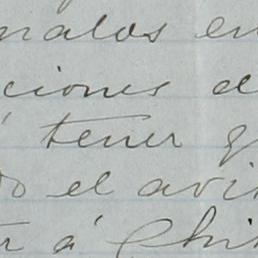 nalos en
ciones d
á tener q
do el avi
r á Chi